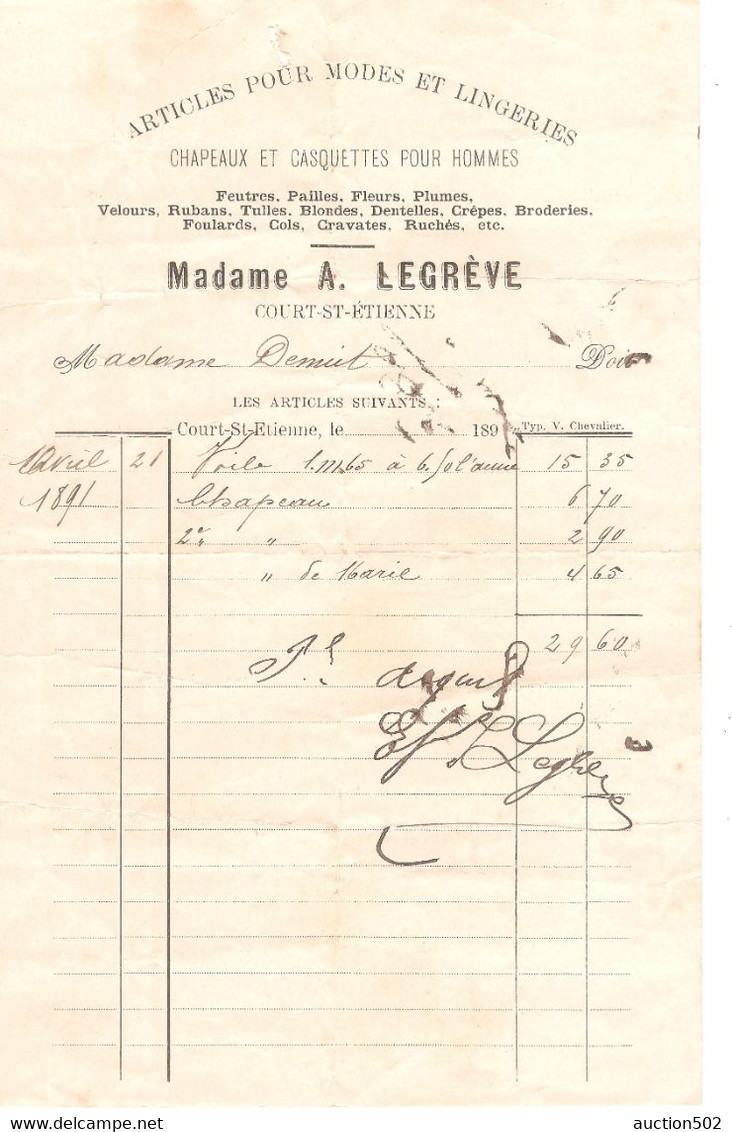 ARTICLES POUR MODES ET LINGERIES
CHAPEAUX ET CASQUETTES POUR HOMMES
Feutres, Pailles, Fleurs, Plumes,
Velours, Rubans, Tulles, Blondes, Dentelles, Crêpes, Broderies,
Foulards, Cols, Cravates, Ruchés, etc.
Madame A. LEGRÈVE
COURT-ST-ÉTIENNE
Madame Doit
LES ARTICLES SUIVANTS :
Court-St-Etienne, le 189 Typ. V. Chevalier.
Avril 21 Voile 1.m.65 à l'aune 15 35
1891 Chapeau 6 70
2e " 2 90
" de Marie 4 65
29 60
Pr acquit
Legrève
auction502